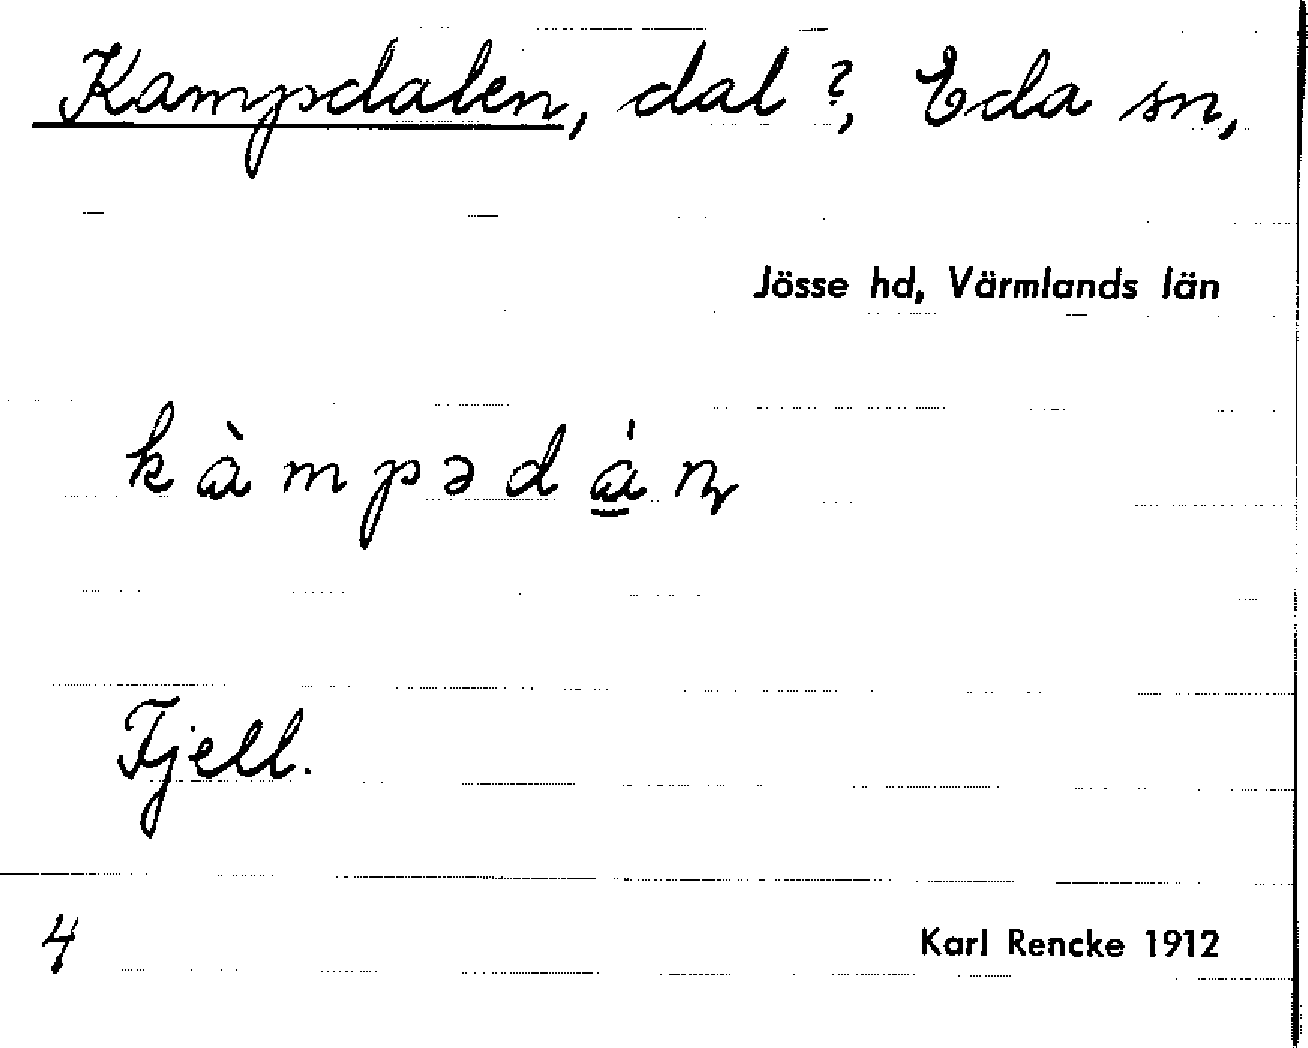 Kampdalen, dal ?, Eda sn,
Jösse hd, Värmlands län
kàmpədá̱n̥
Fjell.
4
Karl Rencke 1912